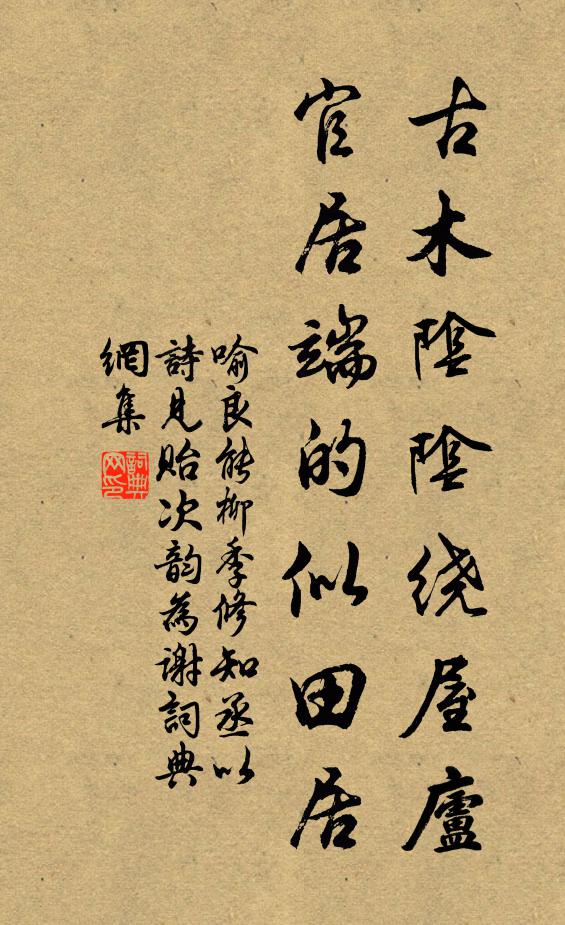 古木陰陰绕屋廬
官居端的似田居
喻良能柳季修知丞以
詩見貽次韵為谢詞典
網集
詞典网印